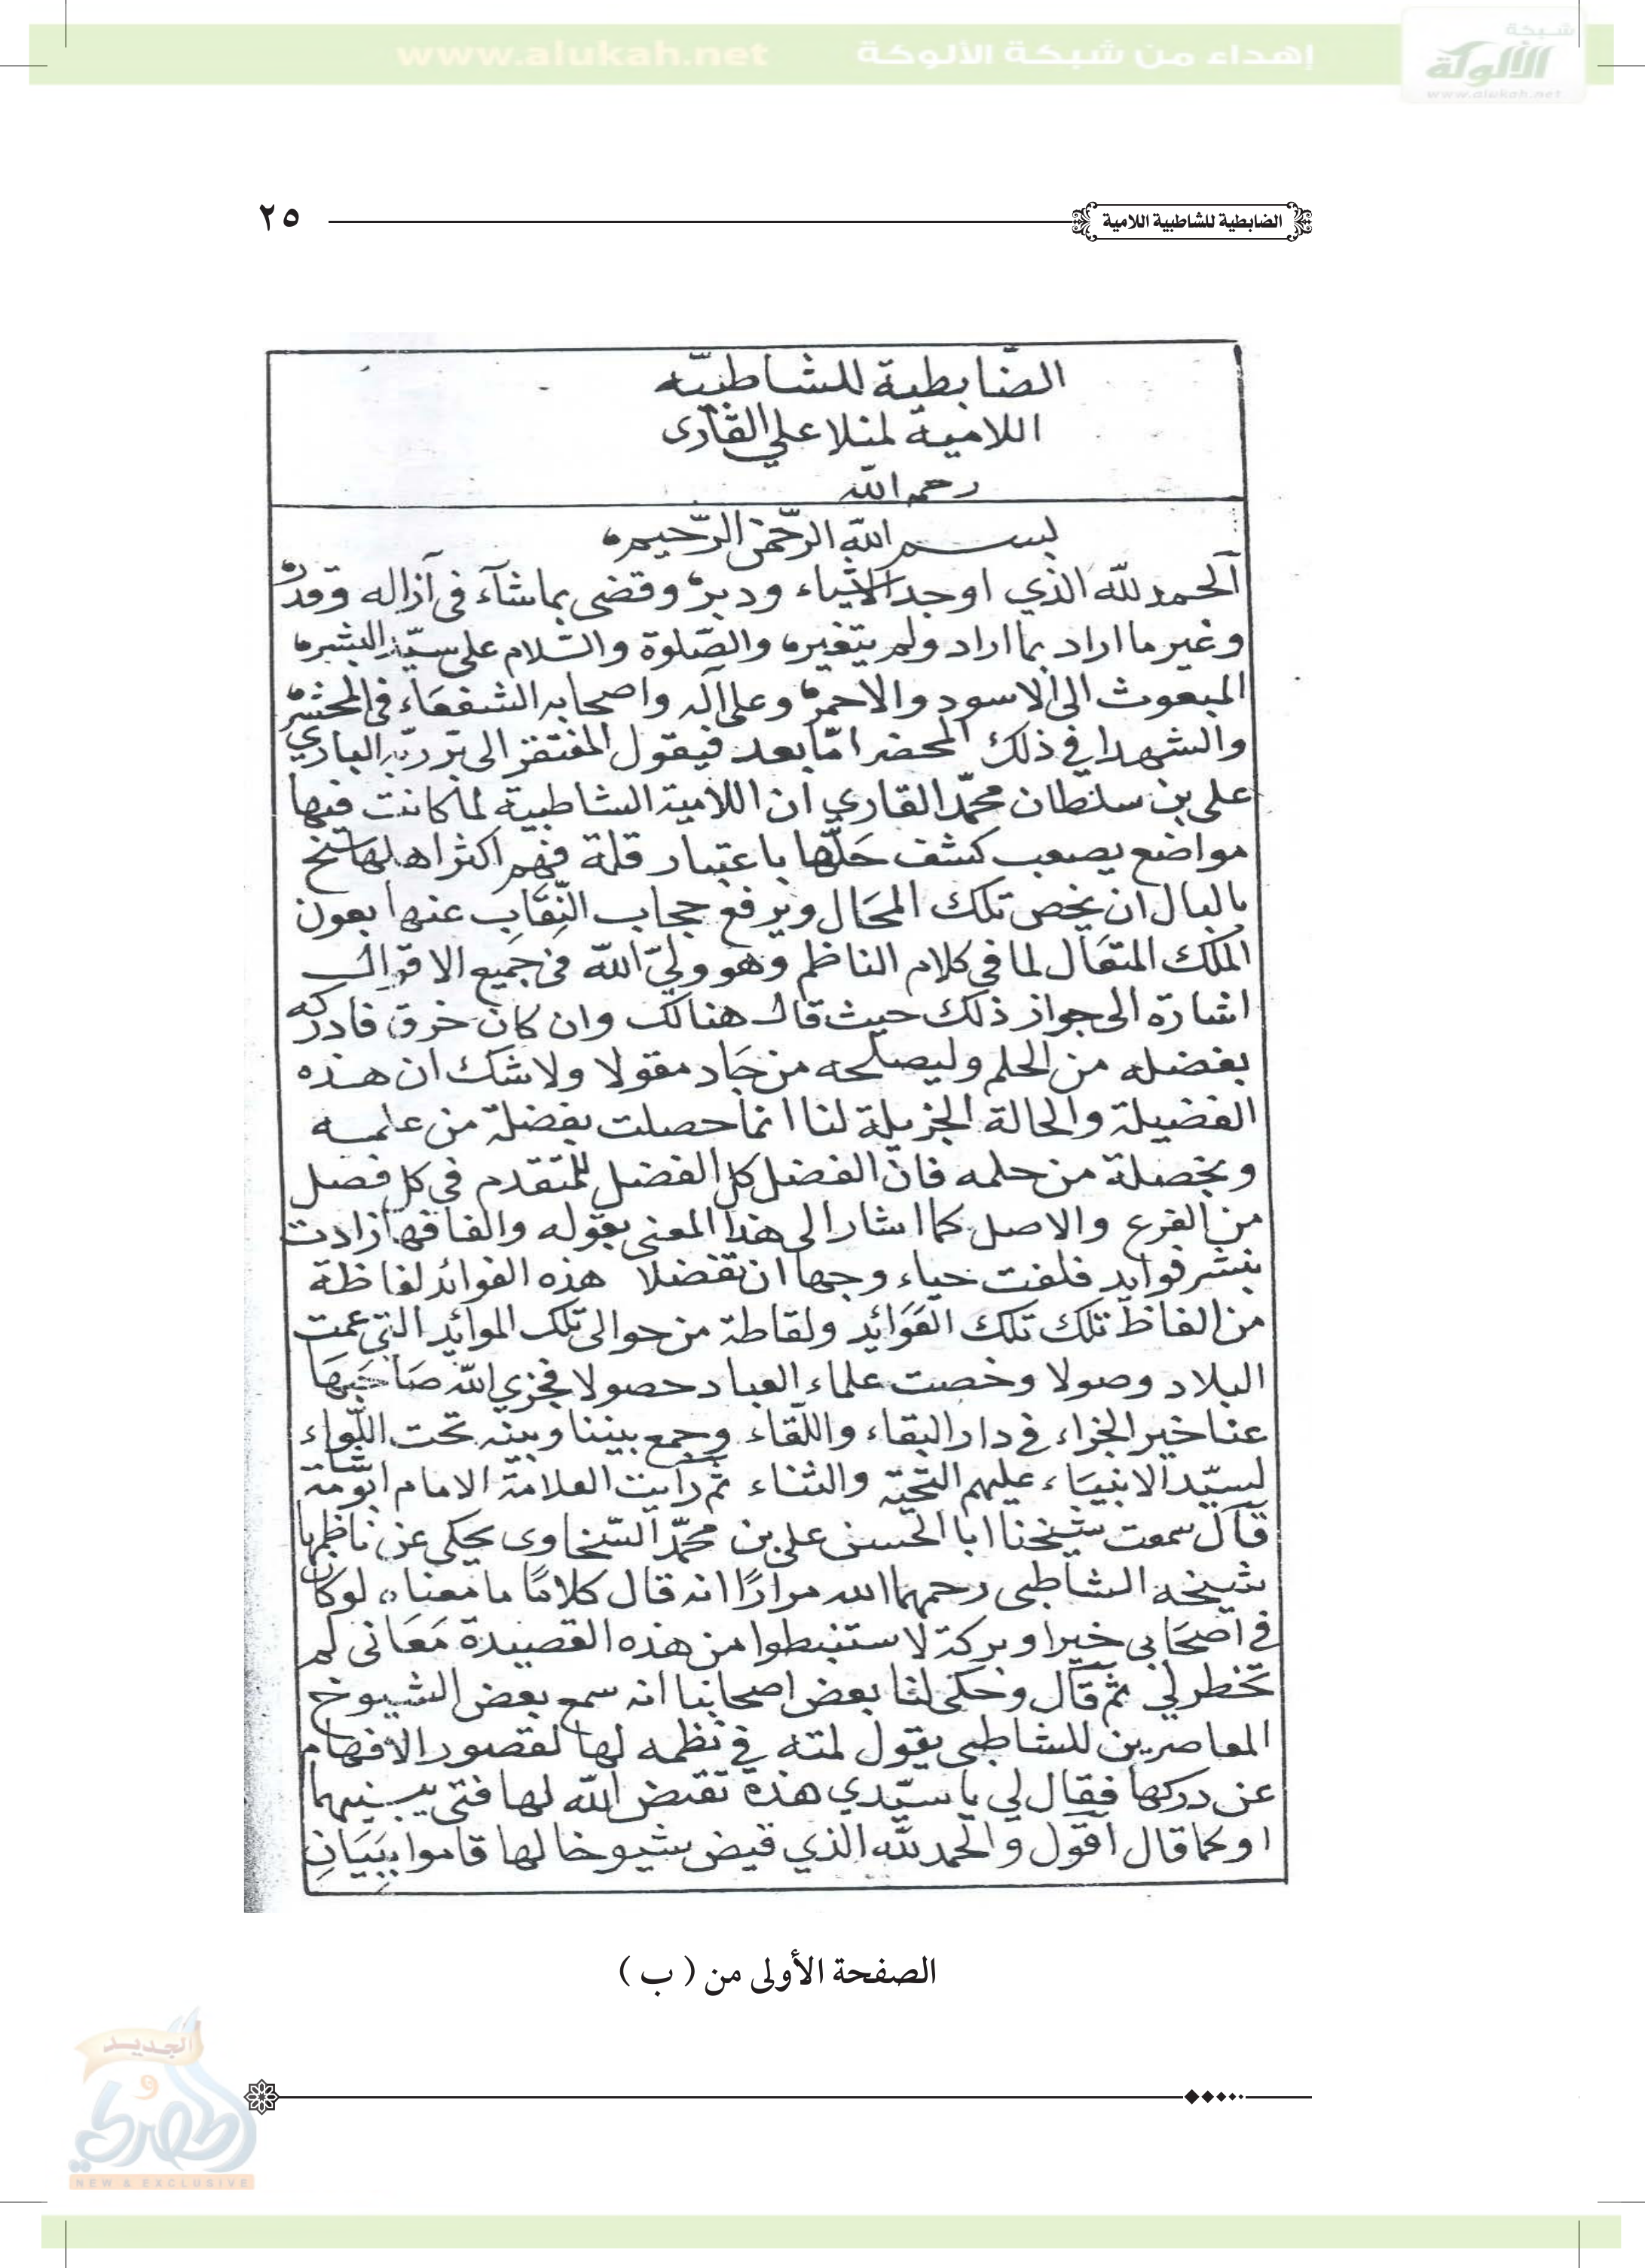 شبكة
الألوكة
www.alukah.net
إهداء من شبكة الألوكة www.alukah.net
الضابطية للشاطبية اللامية ٢٥
الضّابطية للشاطبيّه
اللامية لمنلا علي القارى
رحمه اللّه
بسم اللّه الرّحمن الرّحيم
الحمد للّه الذي اوجد الاشياء ودبر وقضى بما شآء فى آزاله وقدر
وغير ما اراد بما اراد ولم يتغير والصّلوة والسّلام على سيّد البشر
المبعوث الى الاسود والاحمر وعلى آله واصحابه الشفعاء فى المحشر
والشهدا في ذلك المحضر امّا بعد فيقول المفتقر الى بر ربّه الباري
على بن سلطان محمّد القاري ان اللامية الشاطبية لما كانت فيها
مواضع يصعب كشف حَلّها باعتبار قلة فهم اكثر اهلها سنح
بالبال ان يخص تلك المحَال ويرفع حجاب النِّقَاب عنها بعون
الملك المتعَال لما في كلام الناظم وهو وليّ اللّه فى جميع الاقوال
اشارة الى جواز ذلك حيث قال هنالك وان كان خرق فادركه
بفضله من الحلم وليصلحه من جَاد مقولا ولا شك ان هذه
الفضيلة والحالة الجزيلة لنا انما حصلت بفضلة من علمه
وبخصلة من حلمه فانّ الفضل كل الفضل للمتقدم في كل فصل
من الفرع والاصل كما اشار الى هذا المعنى بقوله والفافها زادت
بنشر فوايد فلفت حياء وجهها ان تفضلا هذه الفوائد لفاظة
من الفاظ تلك تلك الفَوَائد ولقاطة من حوالى تلك الموائد التي عمت
البلاد وصولا وخصت علماء العباد حصولا فجزي اللّه صَاحبهَا
عنا خير الجزاء في دار البقاء واللّقاء وجمع بيننا وبينه تحت اللّواء
لسيّد الانبيَاء عليهم التحيّة والثناء ثم رايت العلامة الامام ابو شامة
قال سمعت شيخنا ابا الحسن على بن محمّد السّخاوى يحكي عن ناظمها
شيخه الشاطبى رحمهما الله مرارًا انه قال كلامًا ما معناه لو كان
في اصحَابى خيرا وبركة لاستنبطوا من هذه القصيدة مَعَانى لم
تخطر لي ثم قال وحكى لنا بعض اصحابنا انه سمع بعض الشيوخ
المعاصرين للشاطبى يقول لمته في نظمه لها لقصور الافهام
عن دركها فقال لي يا سيّدي هذه تقيض اللّه لها فتى يبينها
او كما قال اقول والحمد للّه الذي قيض شيوخا لها قاموا ببَيَانِ
الصفحة الأولى من ( ب )
الجديد
و
الحصري
NEW & EXCLUSIVE